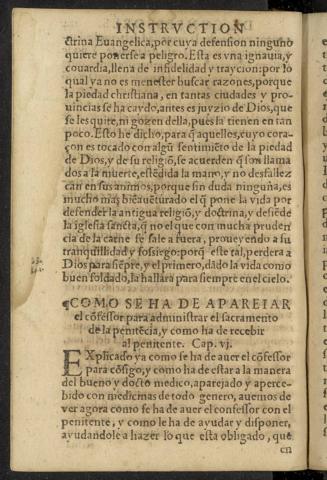 INSTRVCTION
ctrina Euangelica, por cuya defension ninguno
quiere ponerse a peligro. Esta es vna ignauia, y
couardia, llena de infidelidad y traycion: por lo
qual ya no es menester buscar razones, porque
la piedad christiana, en tantas ciudades y pro-
uincias se ha caydo, antes es juyzio de Dios, que
se les quite, ni gozen della, pues la tienen en tan
poco. Esto he dicho, para q̃ aquellos, cuyo cora-
çon es tocado con algũ sentimiẽto de la piedad
de Dios, y de su religiõ, se acuerden q̃ son llama
dos a la muerte, estẽdida la mano, y no desfallez
can en sus animos, porque sin duda ninguña, es
mucho mas biẽauẽturado el q̃ pone la vida por
defender la antigua religiõ, y doctrina, y desiẽde
la iglesia sancta, q̃ no el que con mucha pruden
cia de la carne se sale a fuera, proueyendo a su
tranquillidad y sosiego: porq̃ este tal, perdera a
Dios para siẽpre, y el primero, dãdo la vida como
buen soldado, la hallara para siempre en el cielo.
¶COMO SE HA DE APAREIAR
el cõfessor para administrar el sacramento
de la penitẽcia, y como ha de recebir
al penitente. Cap. vj.
EXplicado ya como se ha de auer el cõfessor
para cõsigo, y como ha de estar a la manera
del bueno y docto medico, aparejado y aperce-
bido con medicinas de todo genero, auemos de
ver agora como se ha de auer el confessor con el
penitente, y como le ha de ayudar y disponer,
ayudandole a hazer lo que esta obligado, que
en